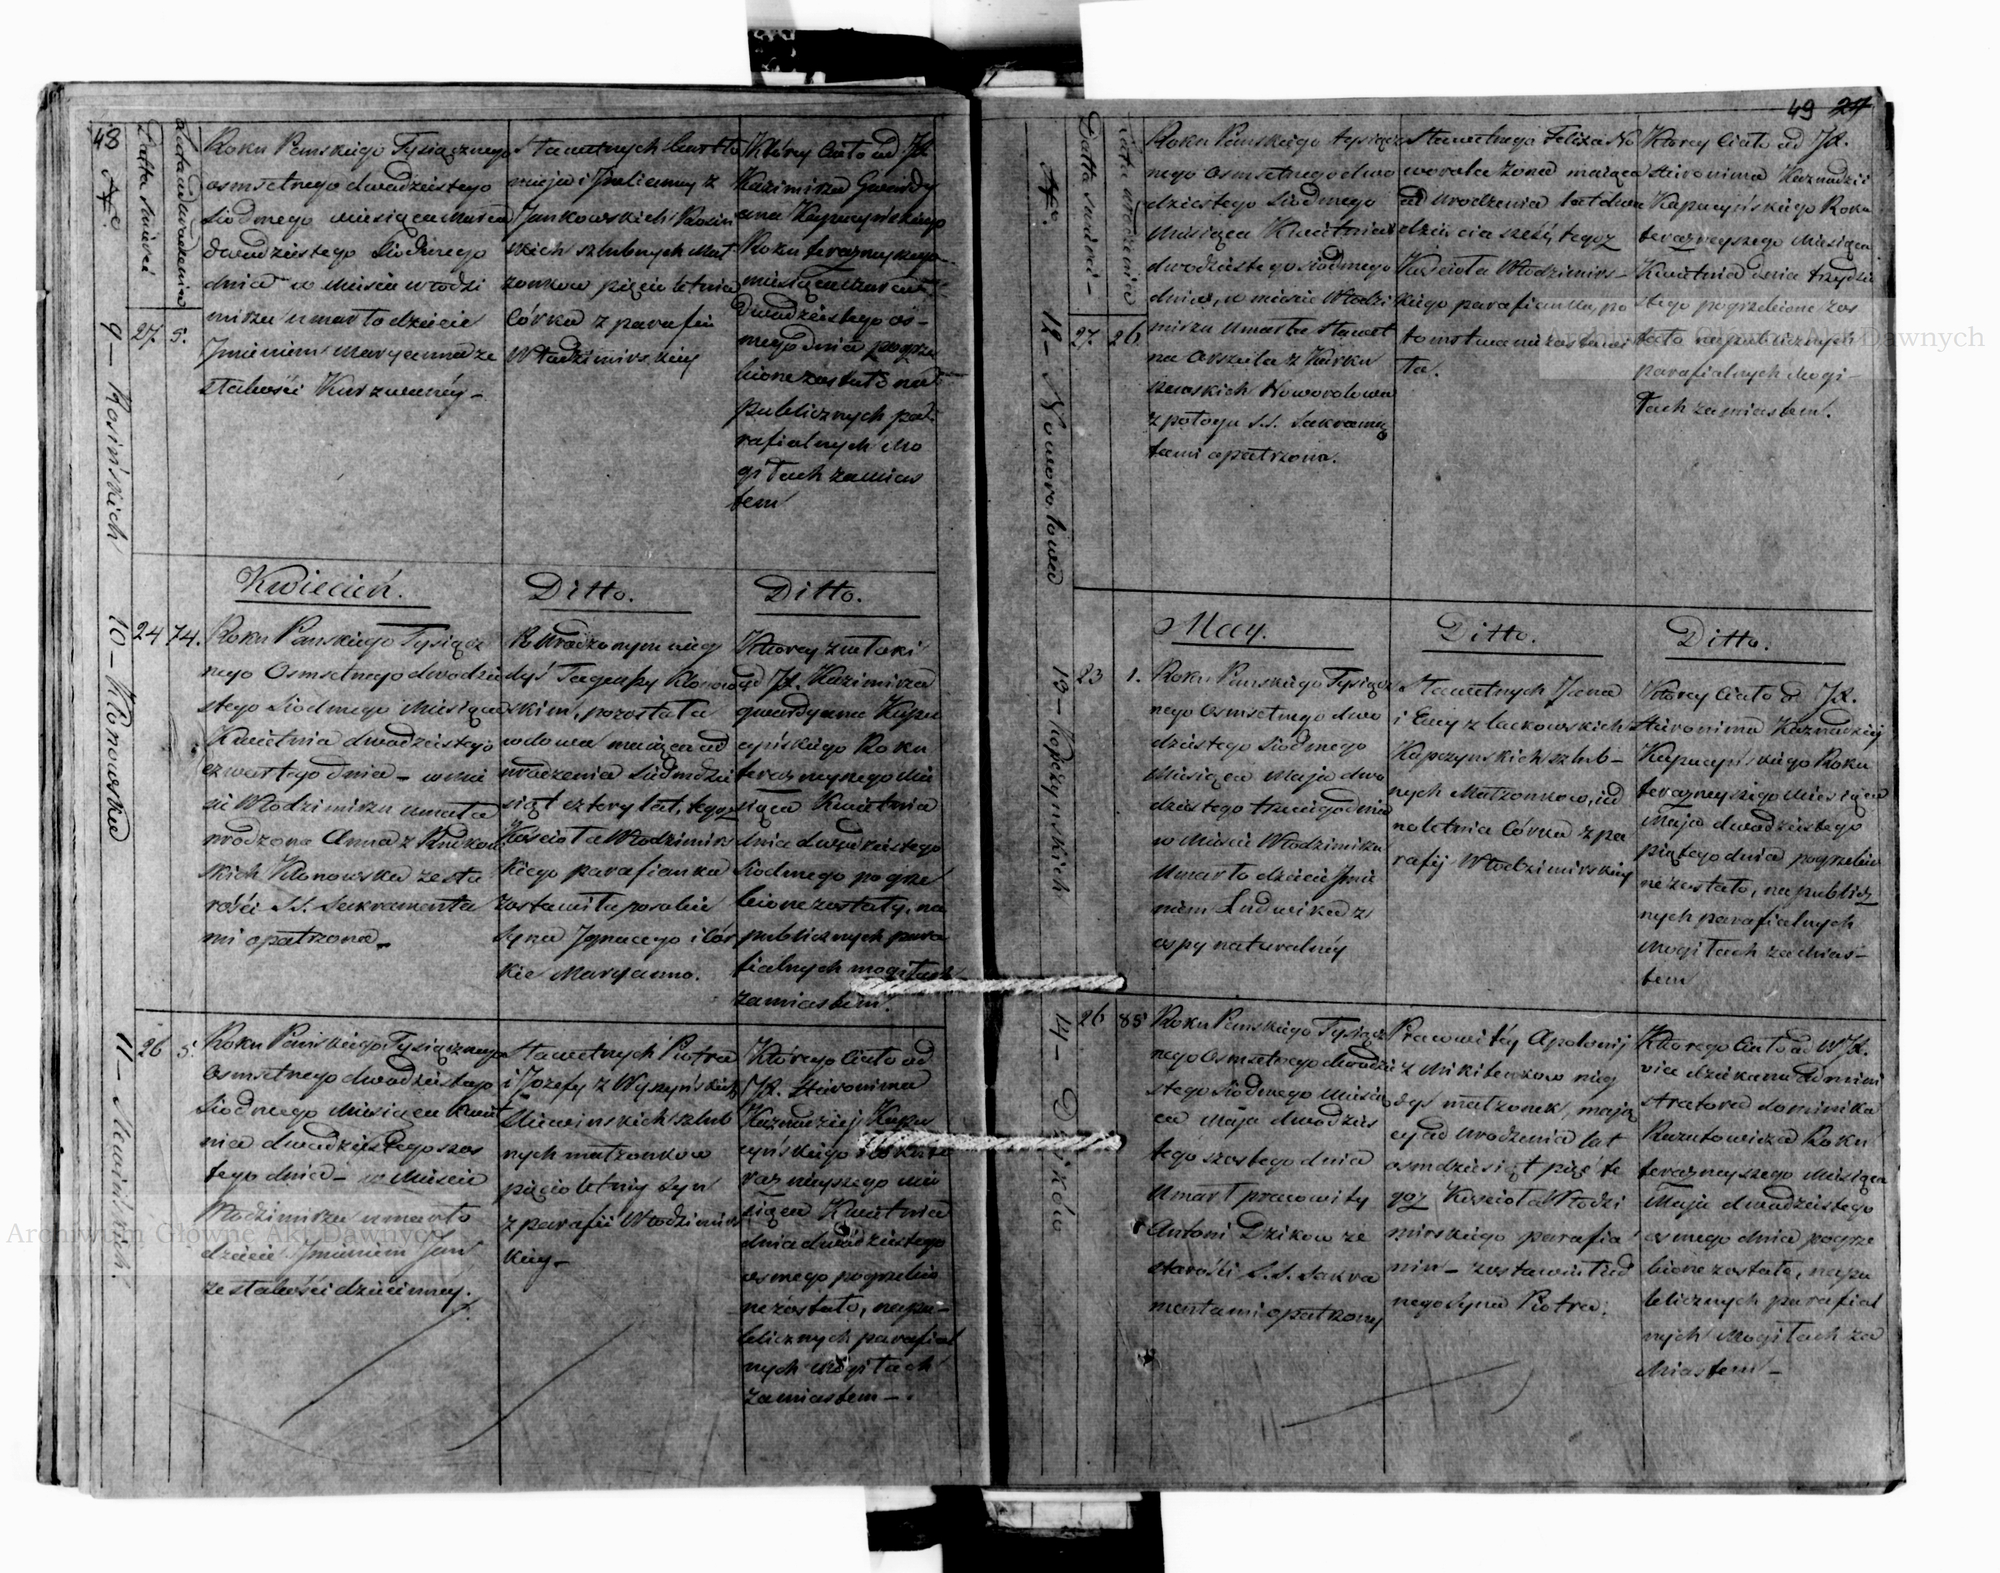 48
No
Datta śmierci
Roku Pańskiego Tysiącznego
osmsetnego dwadziestego
siodmego miesiąca Marca
dwadziestego siodmego
dnia w mieście Włodzi
mirzu umarło dziecie
Imieniem Maryanna ze
słabości
Stawetnych
mieja i Julianny z
Jankowskich Rosiń
skich szlubnych Mał
zonkow pięcio letnia
Córka z parafii
Włodzimirskiey
Którey Ciało od JX
Kazimirza Gwardy
ana Kapucyńskiego
Roku teraznieyszego
miesiąca Marca
Dwadziestego os-
mego dnia pogrze
bione zostało na
publicznych pa-
rafialnych Mo
giłach za mias
tem
27. 5.
9 - Rosińskich
Kwiecień.
Ditto.
Ditto.
10 - Klonowska
24 74.
Roku Pańskiego Tysiącz
nego Osmsetnego dwadzie
stego siodmego Miesiąca
Kwietnia dwadziestego
czwartego dnia - w mie
ście Włodzimirzu umarła
urodzona Anna z
skich Klonowska ze sta
rości S.S. Sakramenta
mi opatrzona.
Po Urodzonym nieg
dyś Klonow
skim, pozostała
wdowa maiąca od
urodzenia siedmdzie
siąt cztery lat, tegoz
Kościoła Włodzimirs
kiego parafianka
zostawiła po sobie
syna Ignacego i Cór
kie Maryanne.
Ktorey zwłoki
od JX. Kazimirza
gwardyana Kapu
cyńskiego Roku
teraznieyszego Mie
siąca Kwietnia
dnia dwadziestego
siodmego pogrze
bione zostały, na
publicznych para
fialnych mogiłach
za miastem.
11 -
26 5.
Roku Pańskiego Tysiącznego
Osmsetnego dwadziestego
siodmego Miesiąca Kwiet
nia dwadziestego szos
tego dnia - w Mieście
Włodzimirzu umarło
dziecie Imieniem Jan
ze słabości dziecinney.
Stawetnych Piotra
i Jozefy z Wyszyńskich
szlub
nych małżonkow
pięcio letniy syn
z parafii Włodzimirs
kiey -
Którego Ciało od
JX. Hieronima
Kaznodziei Kapu
cyńskiego Roku te
raznieyszego Mie
siąca Kwietnia
dnia dwudziestego
osmego pogrzebio
ne zostało, na pu-
blicznych parafial
nych mogiłach
za miastem -.
49 24
No.
Datta śmierci -
Lata urodzenia
12 - Noworolowa
27. 26.
Roku Pańskiego tysiącz
nego Osmsetnego dwa
dziestego siodmego
Miesiąca Kwietnia
dwadziestego siodmego
dnia, w mieście Włodzi
mirzu umarła stawet
na Orszula z
szewskich Noworolowa
z pologu S.S. Sakramen
tami opatrzona.
Stawetnego Felixa No
worola zona maiąca
od urodzenia lat dwa
dzieścia sześć, tegoz
Kościoła Włodzimirs-
kiego parafianka, po
tomstwa nie zostawi
ła.
Ktorey Ciało od JX.
Hieronima Kaznodzii
Kapucyńskiego Roku
teraznieyszego Miesiąca
Kwietnia dnia trzydzie
stego pogrzebione zos
tało na publicznych
parafialnych Mogi-
łach za miastem.
May.
Ditto.
Ditto.
13 - Kopczynskich
23 1.
Roku Pańskiego Tysiącz
nego Osmsetnego dwa
dziestego siodmego
Miesiąca Maja dwa
dziestego trzeciego dnia
w Mieście Włodzimirzu
Umarło dziecie Imie
niem Ludwika z
ospy naturalnéy
Stawetnych Jana
i Ewy z Lackowskich
Kopczynskich szlub-
nych Małzonkow, ied
no letnia Córka z pa
rafij Włodzimirskiey
Ktorey Ciało od JX.
Hieronima Kaznodziej
Kapucyńskiego Roku
teraznieyszego Miesiąca
Maja dwadziestego
piątego dnia pogrzebio
ne zostało, na publicz
nych parafialnych
Mogiłach za Mias-
tem
14 - Dzikow
26 85
Roku Pańskiego Tysiącz
nego Osmsetnego dwadzie
stego siodmego Miesią
ca Maja dwadzies
tego szostego dnia
Umarł pracowity
Antoni Dzikow ze
starości S.S. Sakra
mentami opatrzony
Pracowitéy Apolonij
z Mikitenkow nieg
dyś małzonek, mają
cy od Urodzenia lat
osmdziesiąt pięć te
goz Kościoła Włodzi
mirskiego parafia
nin - zostawił ied
nego syna Piotra.
Ktorego Ciało od WJX.
vice dziekana Admini
stratora dominika
Roku
teraznieyszego Miesiąca
Maja dwadziestego
osmego dnia pogrze
bione zostało, na pu
blicznych parafial
nych Mogiłach za
Miastem -
Archiwum Główne Akt Dawnych
Archiwum Główne Akt Dawnych